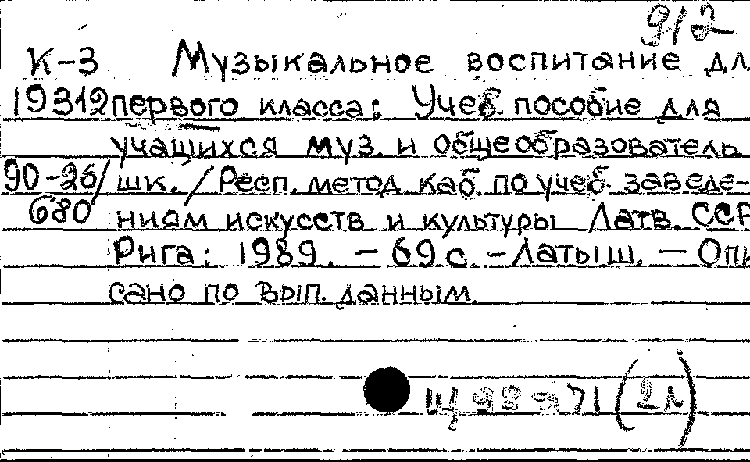 912
К-3 Музыкальное воспитание дл
19312 первого класса: Учеб. пособие для
учащихся муз. и общеобразователь.
90-26/ шк. / Респ. метод. каб. по учеб. заведе-
680 ниям искусств и культуры Латв. ССР
Рига: 1989. - 69 с. - Латыш. - Опи
сано по вып. данным.
Щ 71 (2Л)